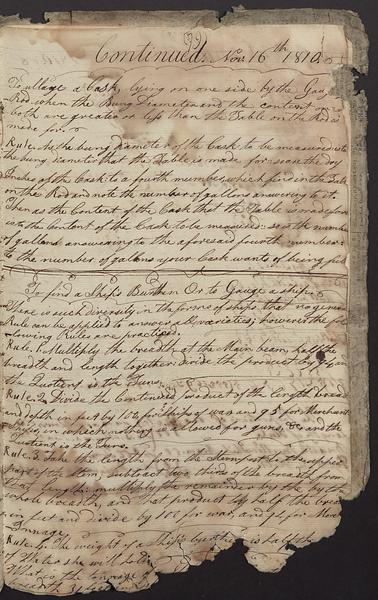 (79)
Continued. Nov. 16th 1810
To ullage a Cask, lying on one side by the Gau
Rod when the Bung Diameter and the content or
both are greater or less than the Table on the Rod is
made for.
Rule. As the bung diameter of the Cask to be measured is to
the bung diameter that the Table is made for: so are the dry
Inches of the Cask to a fourth number, which find in the Table
on the Rod and note the number of gallons answering to it.
Then as the Content of the Cask that the Table is made for
is to the Content of the Cask to be measured: so is the number
of gallons answering to the aforesaid fourth number:
to the number of gallons your Cask wants of being full
To find a Ship's Burthen Or to Gauge a ship
There is such diversity in the forms of ships, that no general
Rule can be applied to answer all varieties; however the fol
lowing Rules are practised.
Rule. 1. Multiply the breadth at the Main beam, half the
breadth and length together: divide the product by 94, and
the Quotient is the Tuns.
Rule. 2. Divide the continued product of the length, bread
and depth in feet by 100 for ships of war and 95 for Merchant
ships, in which nothing is allowed for guns, &c and the
Quotient is the Tuns.
Rule. 3. Take the length, from the Stempost to the upper
part of the Stem; subtract two thirds of the breadth from
that length, multiply the remainder by the
whole breadth, and that product by half the bread
in feet and divide by 100 for war, and 94 for Merc
Tunnage
Rule. 4. The weight of a Ship's is half the
of Water she will hold
the tonnage